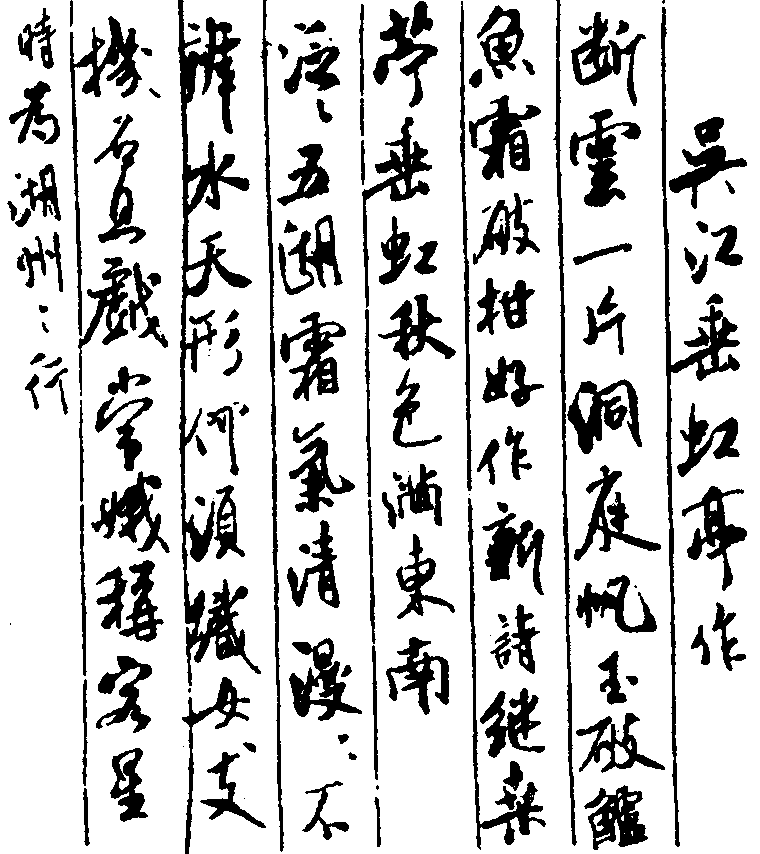 吳江垂虹亭作
断雲一片洞庭帆玉破鱸
魚霜破柑好作新詩継桑
苧垂虹秋色滿東南
泛〻五湖霜氣清漫〻不
辨水天形何須織女支
機石且戲常娥稱客星
時為湖州之行